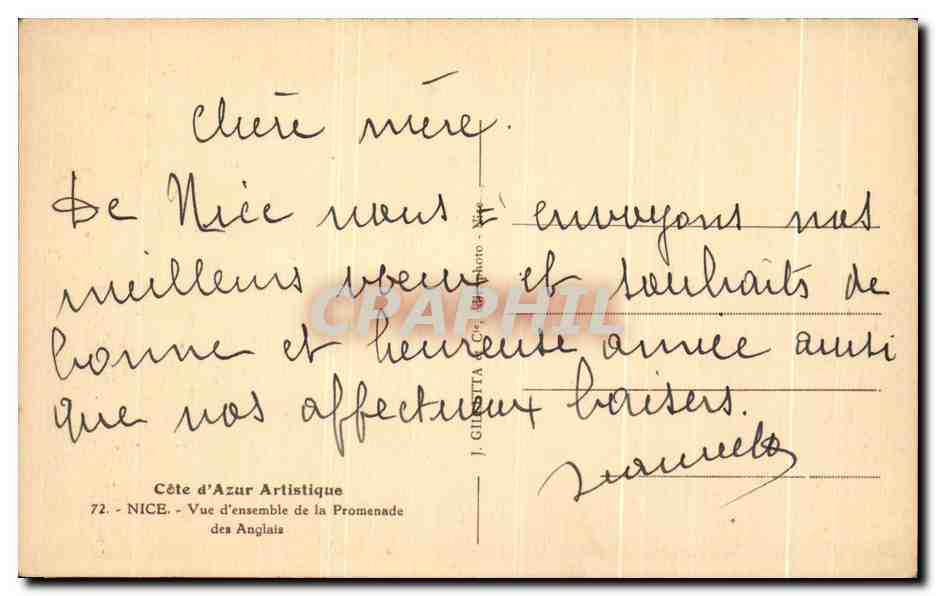 Chère mère.
De Nice nous envoyons nos
meilleurs voeux et souhaits de
bonne et heureuse année ainsi
que nos affectueux baisers.
Côte d'Azur Artistique
72. - NICE. - Vue d'ensemble de la Promenade
des Anglais
J. GILLETTA & Cie, photo - Nice
CPAPHIL